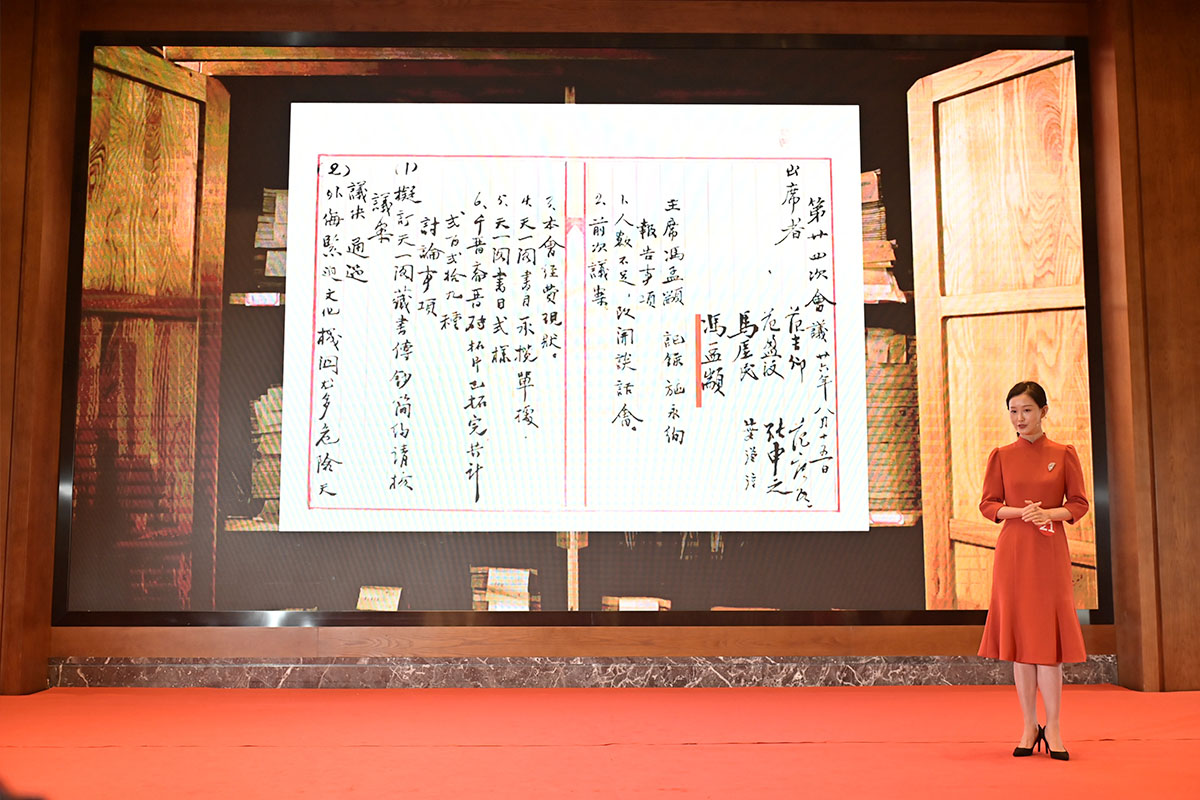 第廿四次會議 廿六年八月十五日
出席者
范吉卿
范盈汶
馬涯民
馮孟顓
張申之
主席馮孟顓 記錄施永絢
報告事項
1、人數不足,改開談話會。
2、前次議案
3、本會經費現狀。
4、天一閣書目承攬單據.
5、天一閣書目式樣
6、千晉齋晉磚拓片已拓完共計
弍百弍拾九種
討論事項
(1)擬訂天一閣藏書傳鈔簡約請核
議案
議决 通過
(2)外海緊迫文化機関尤多危險天